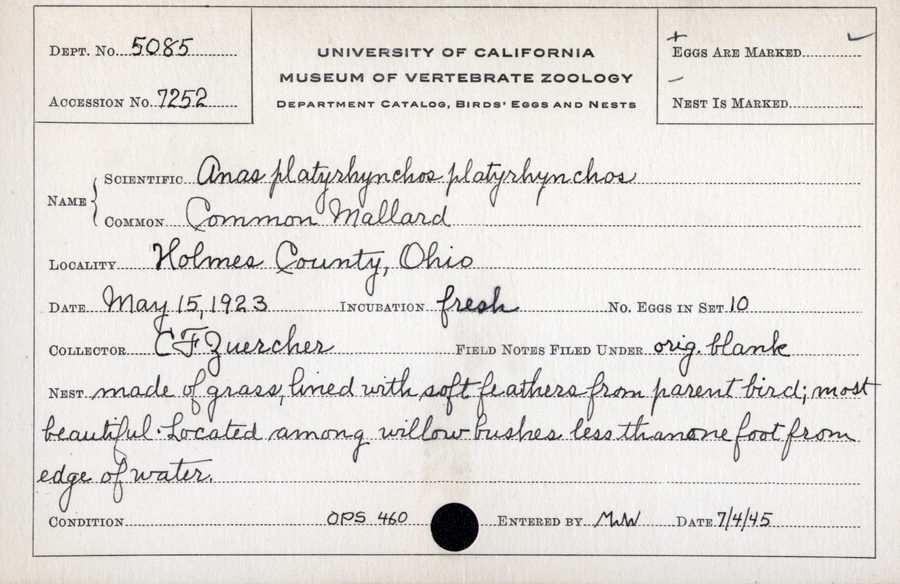 DEPT. No. 5085
ACCESSION No. 7252
UNIVERSITY OF CALIFORNIA
MUSEUM OF VERTEBRATE ZOOLOGY
DEPARTMENT CATALOG, BIRDS' EGGS AND NESTS
+
EGGS ARE MARKED ✓
—
NEST IS MARKED
NAME { SCIENTIFIC Anas platyrhynchos platyrhynchos
COMMON Common Mallard
LOCALITY Holmes County, Ohio
DATE May 15, 1923 INCUBATION fresh No. EGGS IN SET 10
COLLECTOR C F Zuercher FIELD NOTES FILED UNDER orig. blank
NEST made of grass, lined with soft feathers from parent bird; most
beautiful. Located among willow bushes less than one foot from
edge of water.
CONDITION OPS 460 ENTERED BY MWW DATE 7/4/45